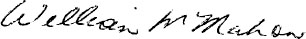 William McMahon